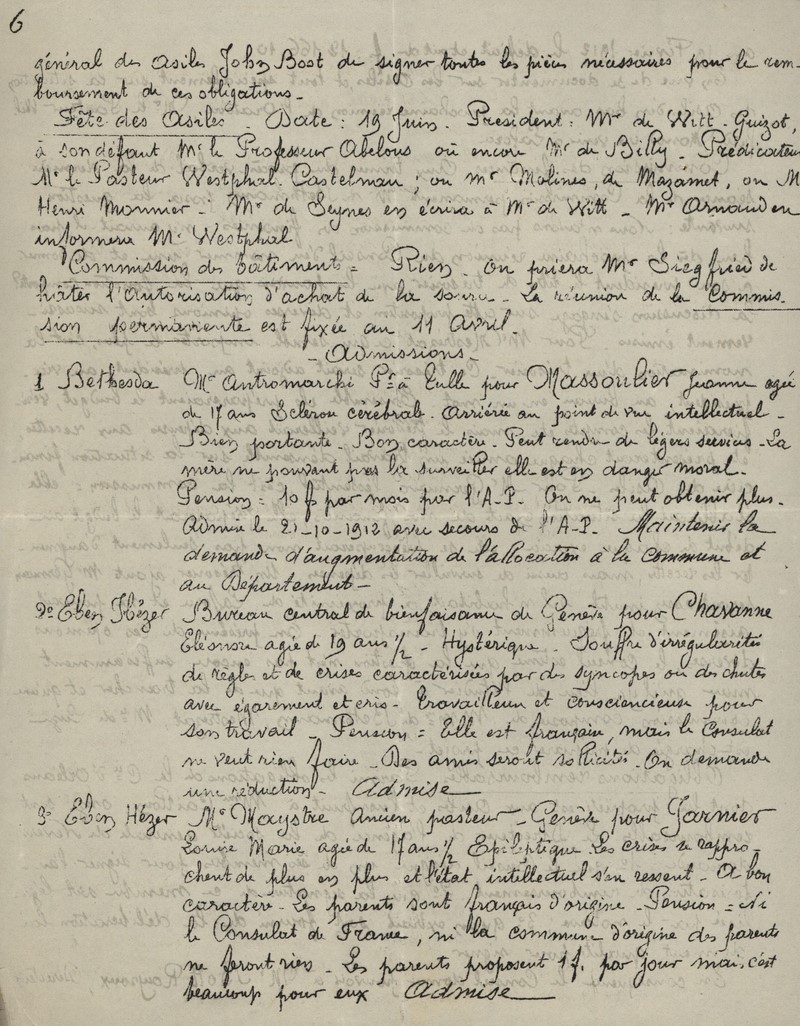 6
général des Asiles John Bost de signer toutes les pièces nécessaires pour le rem-
boursement de ces obligations -
Fête des Asiles. Date : 19 Juin. Président : Mr de Witt-Guizot,
à son défaut Mr le Professeur Abelous ou encore Mr de Billy - Prédicateur
Mr le Pasteur Westphal. Castelnau ; ou Mr Molines, de Mazamet, ou M
Henri Monnier - : Mr de Seynes en écrira à Mr de Witt - Mr Arnaud en
informera Mr Westphal
Commission des bâtiments = Rien - On priera Mr Siegfried de
hâter l'autorisation d'achat de la source - La réunion de la Commis-
sion permanente est fixée au 11 Avril -
- Admissions -
1 Bethesda Mr Antromarchi Pr à Tulle pour Massoulier Jeanne agée
de 17 ans Sclérose cérébrale. Arriérée au point de vue intellectuel -
Bien portante - Bon caractère - Peut rendre de légers services - La
mère ne pouvant pas la surveiller elle est en danger moral -
Pension = 10 f par mois par l'A-P. On ne peut obtenir plus -
Admise le 21-10-1912 avec secours de l'A-P. Maintenir la
demande d'augmentation de l'allocation à la commune et
au Département -
2° Eben Hézer Bureau central de bienfaisance de Genève pour Chavanne
Eléonore agée de 19 ans 1/2 - Hystérique - Souffre d'irrégularités
de règles et de crises caractérisées par des syncopes ou des chutes
avec égarement et cris - Travailleuse et consciencieuse pour
son travail - Pension = Elle est française, mais le Consulat
ne veut rien faire - Des amis seront sollicités - On demande
une réduction - Admise
3° Eben Hézer Mr Maystre ancien pasteur - Genève pour Garnier
Louise Marie agée de 17 ans 1/2 Epileptique Les crises se rappro-
chent de plus en plus et l'état intellectuel s'en ressent - A bon
caractère - Les parents sont français d'origine - Pension = Ni
le Consulat de France, ni la commune d'origine des parents
ne feront rien - Les parents proposent 1 f. par jour mais c'est
beaucoup pour eux Admise